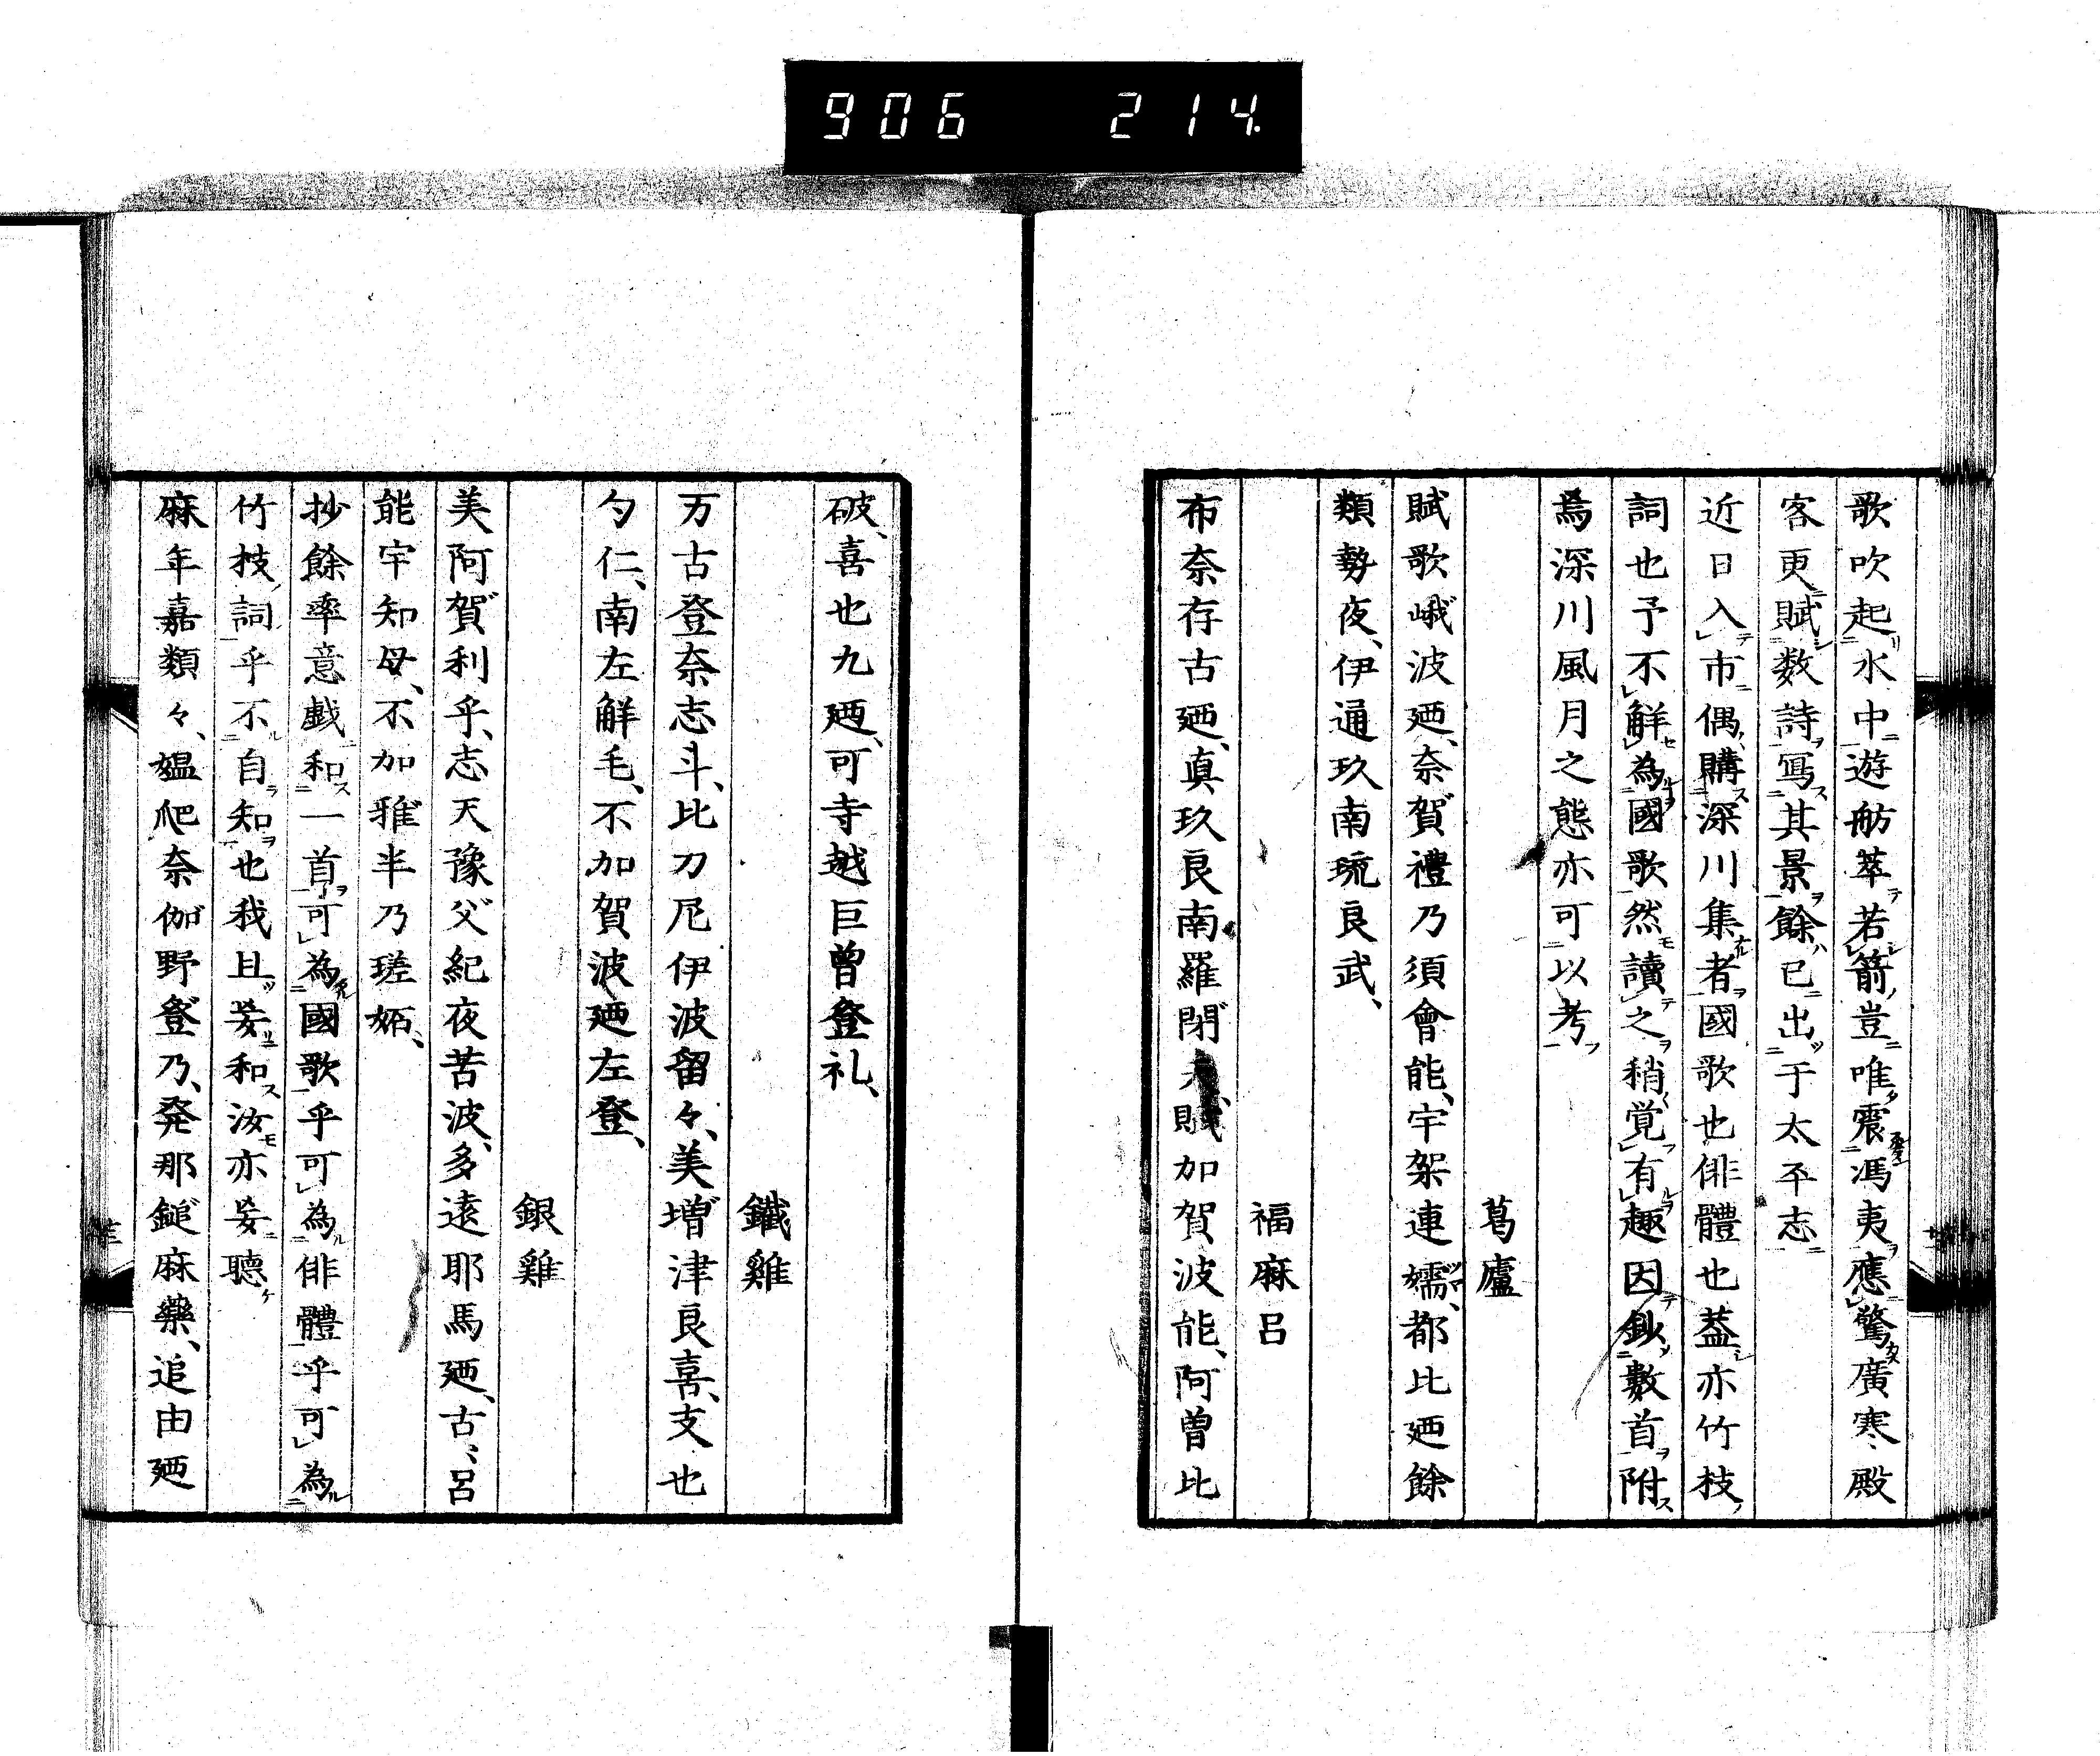 906 214
歌吹起水中遊舫萃若箭豈唯震馮夷應驚廣寒殿
客更賦数詩寫其景餘已出于太平志
近日入市偶購深川集者國歌也俳體也葢亦竹枝
詞也予不解為國歌然讀之稍覚有趣因鈔數首附
焉深川風月之態亦可以考
葛廬
賦歌峨波廼、奈賀禮乃須會能、宇架連嬬、都比廼餘
類勢夜、伊通玖南琉良武、
福麻呂
布奈存古廼、真玖良南羅閉、賦加賀波能、阿曽比
破、喜也九廼、可寺越巨曽登礼、
鐵雞
万古登奈志斗、比刀尼伊波留々、美増津良喜、支也
勺仁、南左解毛、不加賀波廼左登、
銀雞
美阿賀利乎、志天豫父紀夜苦波、多遠耶馬廼、古、呂
能宇知母、不加雅半乃瑳妬、
抄餘率意戯和一首可為國歌乎可為俳體乎可為
竹枝詞乎不自知也我且妄和汝亦妄聽
麻年嘉類々、媼爬奈伽野登乃、発那鎚麻藥、追由廼